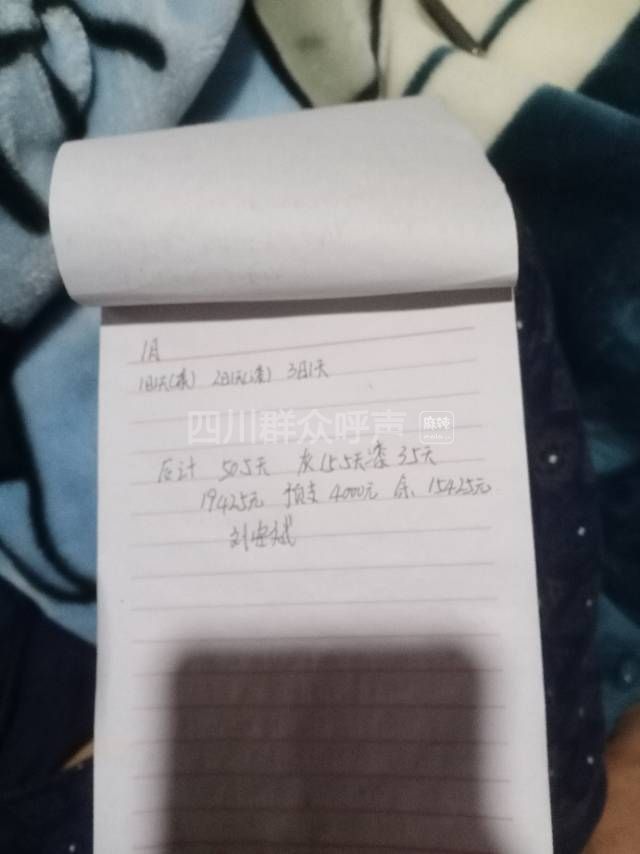 1月
1日1天(漆) 2日1天(漆) 3日1天
四川群众呼声 麻辣
合计 50.5天 灰15.5天 漆35天
19425元 预支4000元 余 15425元